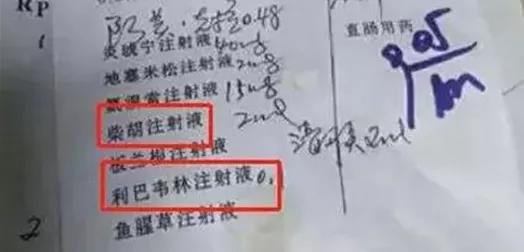 RP
1
炎琥宁注射液 40mg
直肠用药
地塞米松注射液 2mg
氨溴索注射液 15mg
柴胡注射液 2ml
板兰根注射液
利巴韦林注射液 0.
2
鱼腥草注射液